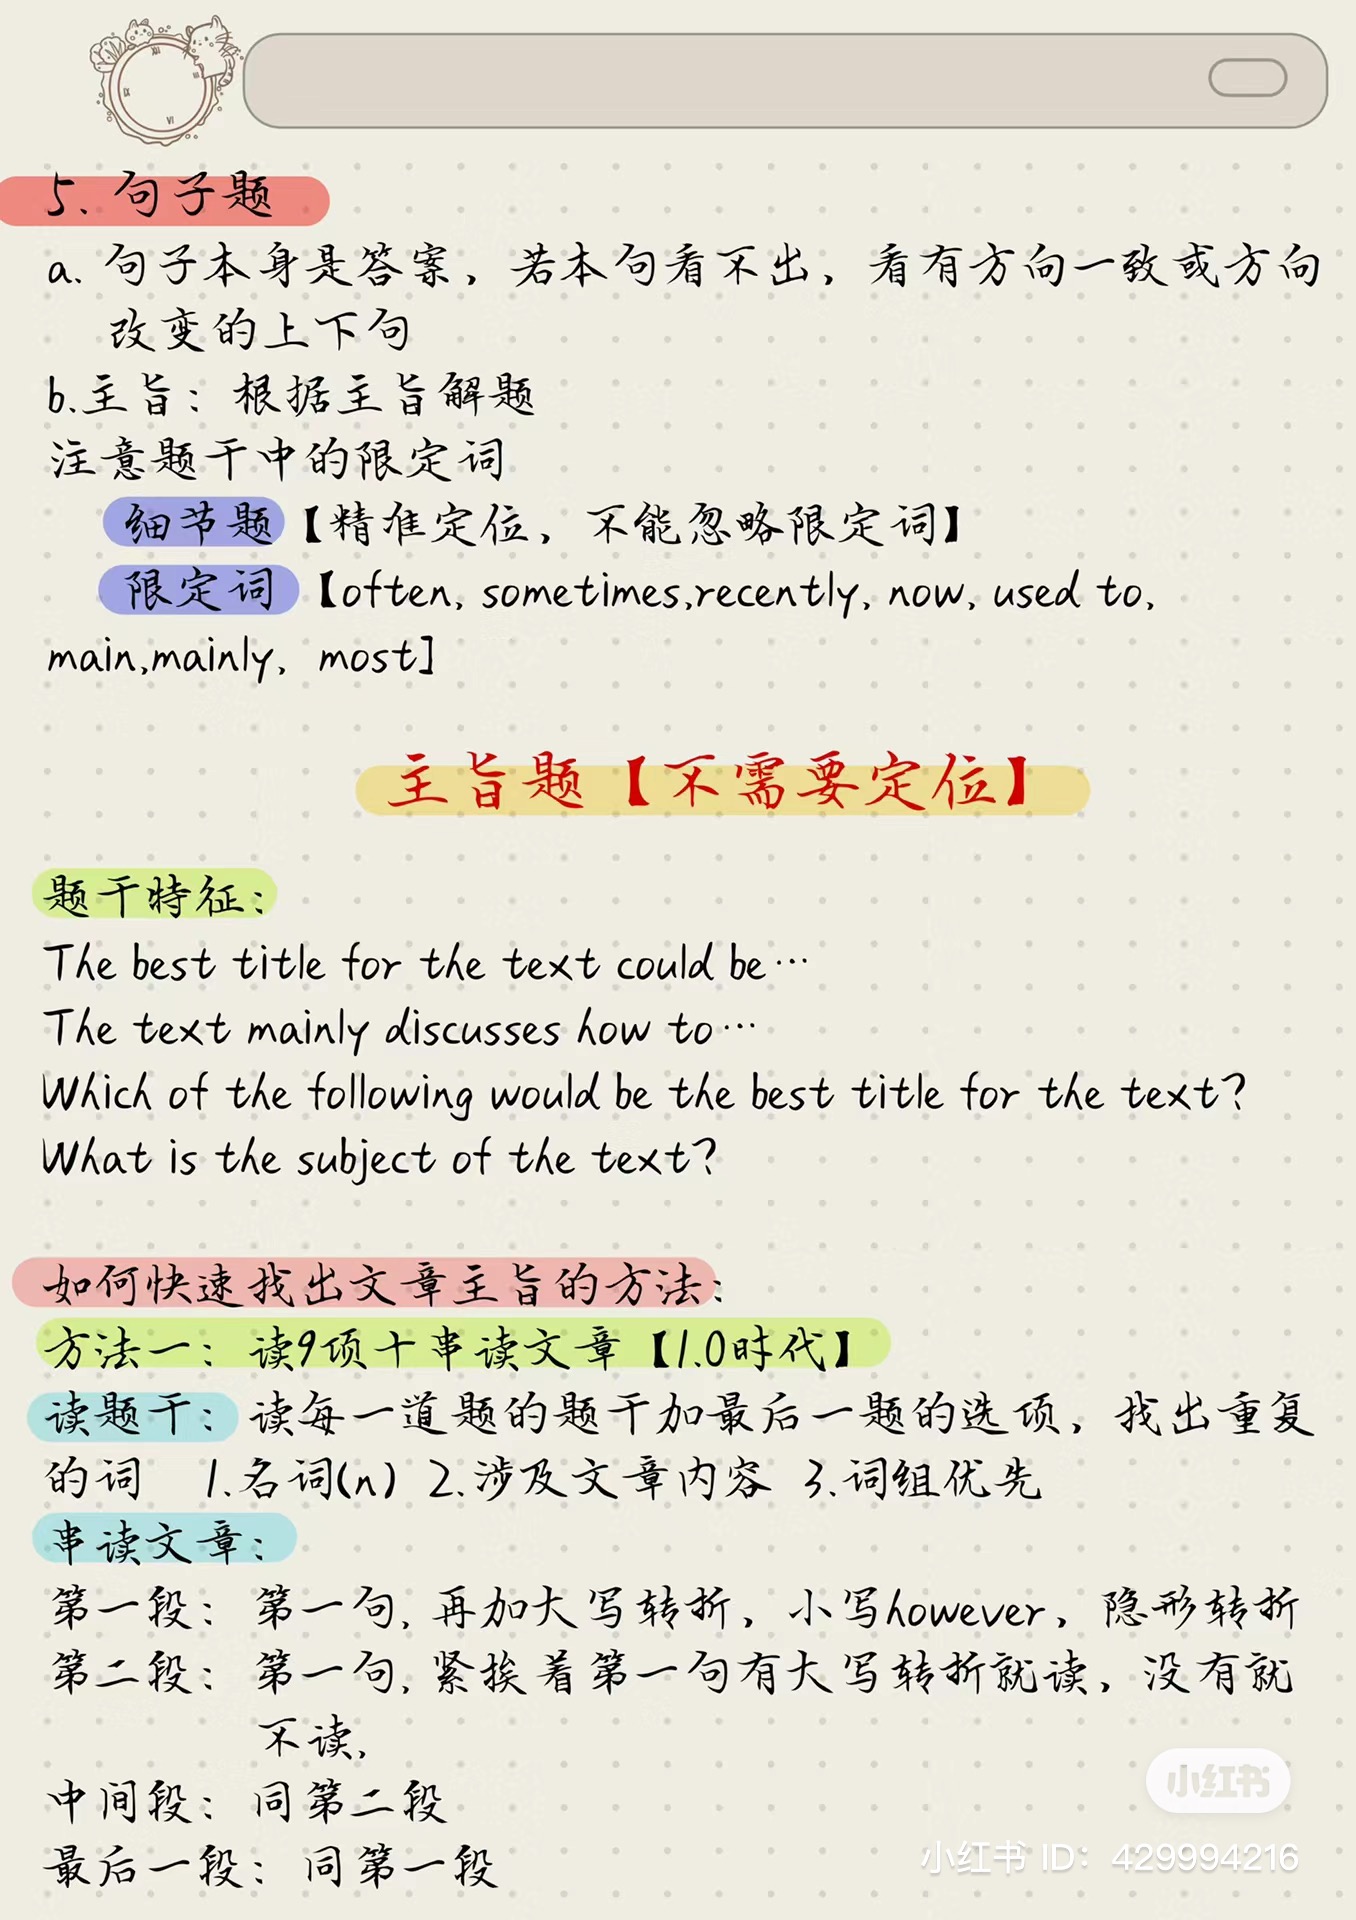 5. 句子题
a. 句子本身是答案，若本句看不出，看有方向一致或方向
改变的上下句
b.主旨：根据主旨解题
注意题干中的限定词
细节题【精准定位，不能忽略限定词】
限定词【often, sometimes,recently, now, used to,
main,mainly, most]
主旨题【不需要定位】
题干特征：
The best title for the text could be…
The text mainly discusses how to…
Which of the following would be the best title for the text?
What is the subject of the text?
如何快速找出文章主旨的方法：
方法一：读9项十串读文章【1.0时代】
读题干：读每一道题的题干加最后一题的选项，找出重复
的词 1.名词(n) 2.涉及文章内容 3.词组优先
串读文章：
第一段：第一句, 再加大写转折，小写however，隐形转折
第二段：第一句, 紧挨着第一句有大写转折就读，没有就
不读,
中间段：同第二段
最后一段：同第一段
小红书
小红书 ID：429994216